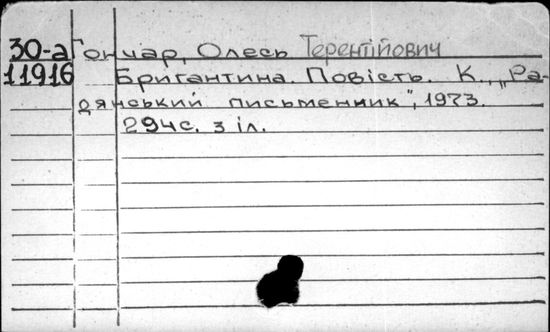 30-а Гончар, Олесь Терентійович
11916 Бригантина. Повість. К., „Ра-
дянський письменник", 1973.
294с. з іл.